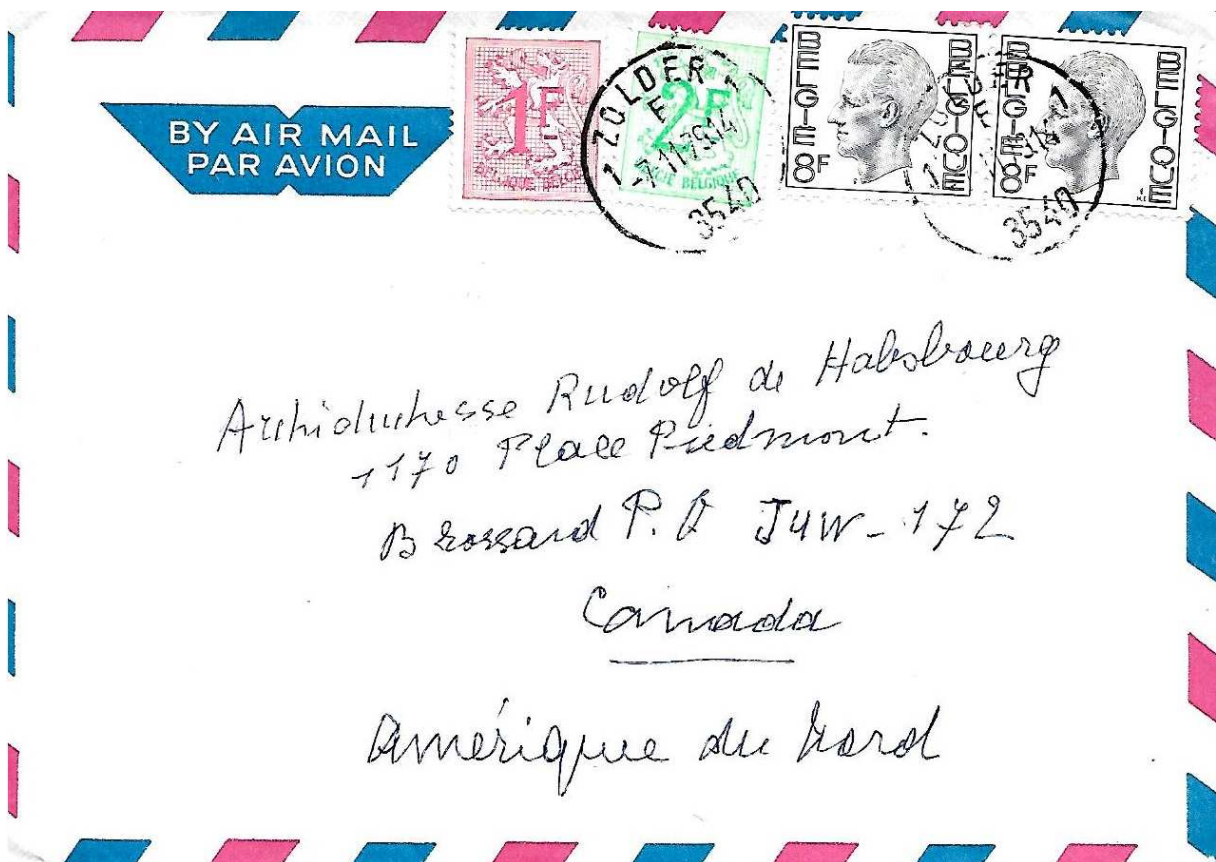 BY AIR MAIL
PAR AVION
1F
BELGIQUE BELGIE
2F
BELGIE BELGIQUE
BELGIE 8F BELGIQUE
BELGIE 8F BELGIQUE
1 ZOLDER 1
E
-7-11-79.14
3540
1 ZOLDER 1
E
3540
Archiduchesse Rudolf de Habsbourg
1170 Place Piedmont.
Brossard P.Q J4W-172
Canada
Amérique du Nord